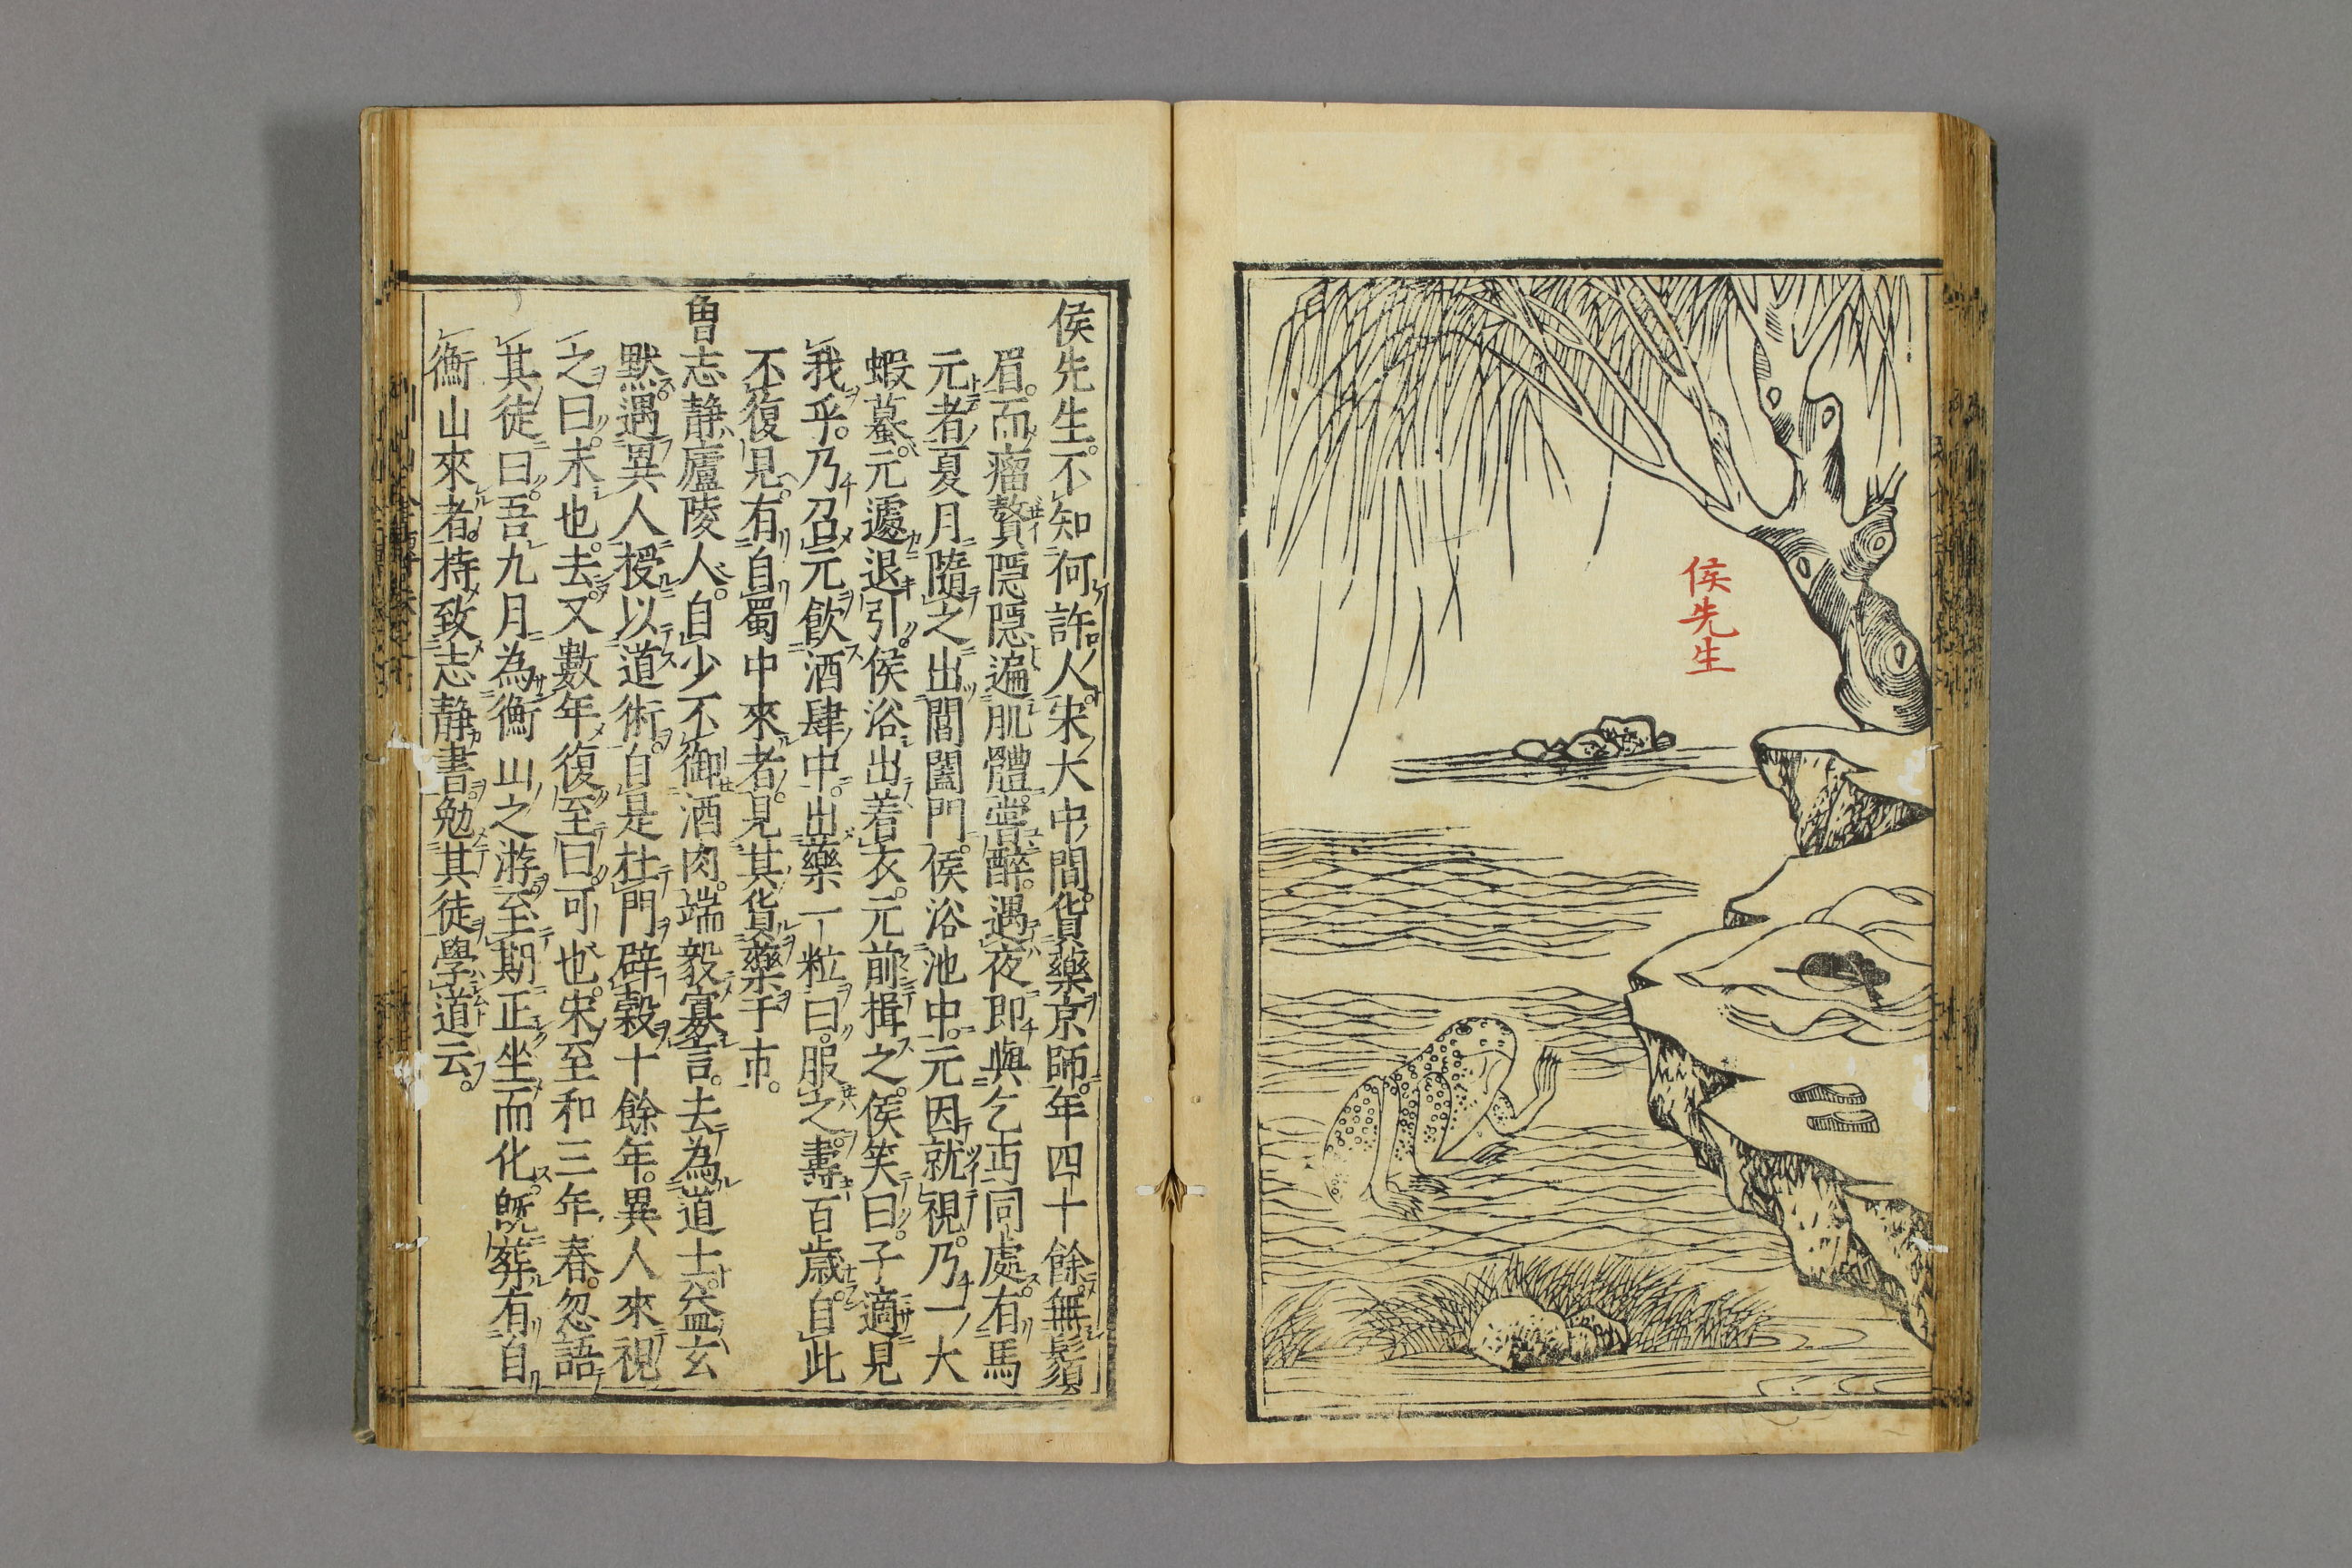 侯先生
侯先生。不知何許人。宋大中間。貨藥京師。年四十餘。無鬚
眉。而瘤贅隠隠。遍肌體。嘗醉。遇夜即與乞丐同處。有馬
元者。夏月隨之出閶闔門。侯浴池中。元因就視。乃一大
蝦蟇。元遽退引。侯浴出着衣。元前揖之。侯笑曰。子適見
我乎。乃召元飲酒肆中。出藥一粒曰。服之。壽百歳。自此
不復見。有自蜀中來者。見其貨藥于市。
魯志静廬陵人。自少不御酒肉。端毅寡言。去為道士。益玄
默。遇異人授以道術。自是杜門辟穀十餘年。異人來視
之曰。未也。去。又數年復至曰。可也。宋至和三年春。忽語
其徒曰。吾九月為衡山之游。至期正坐而化。既葬有自
衡山來者。持致志静書。勉其徒學道云。